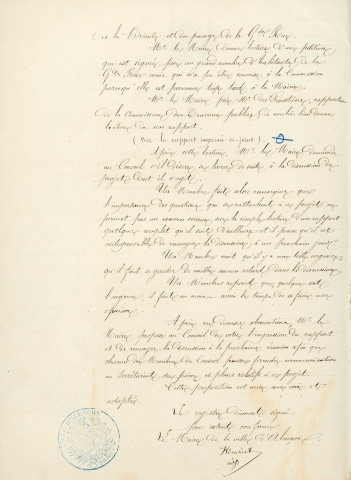 de la Préfecture et du passage de la Gde Rue.
Mr. le Maire donne lecture d'une pétition
qui est signée par un grand nombre d'habitants de la
Gde Rue mais qui n'a pu être remise à la Commission
parcequ'elle est parvenue trop tard à la Mairie.
Mr. le Maire prie Mr. des rapporteur
de la Commission des travaux publics de vouloir bien donner
lecture de son rapport.
(Voir le rapport imprimé ci-joint)
Après cette lecture Mr. le Maire demande
au Conseil s'il désire se livrer de suite à la discussion du
projet dont il s'agit.
Un Membre fait alors remarquer que
l'importance des questions qui se rattachent à ce projet ne
permet pas un examen sérieux sur la simple lecture d'un rapport
quelque complet qu'il soit d'ailleurs et il pense qu'il est
indispensable de renvoyer la discussion à un prochain jour.
Un Membre dit qu'il y a une telle urgence
qu'il faut se garder de mettre aucun retard dans la discussion.
Un Membre répond que quelque soit
l'urgence il faut au moins avoir les temps de se former une
opinion.
Après ces diverses observations Mr. le
Maire propose au Conseil de voter l'impression du rapport
et de renvoyer la discussion à la prochaine réunion afin que
chacun des Membres du Conseil puisse prendre communication
au Secrétariat des pièces et plans relatifs à ce projet.
Cette proposition est mise aux voix et
adoptée.
Le registre dûment signé
pour extrait conforme
Le Maire de la ville d'Alençon